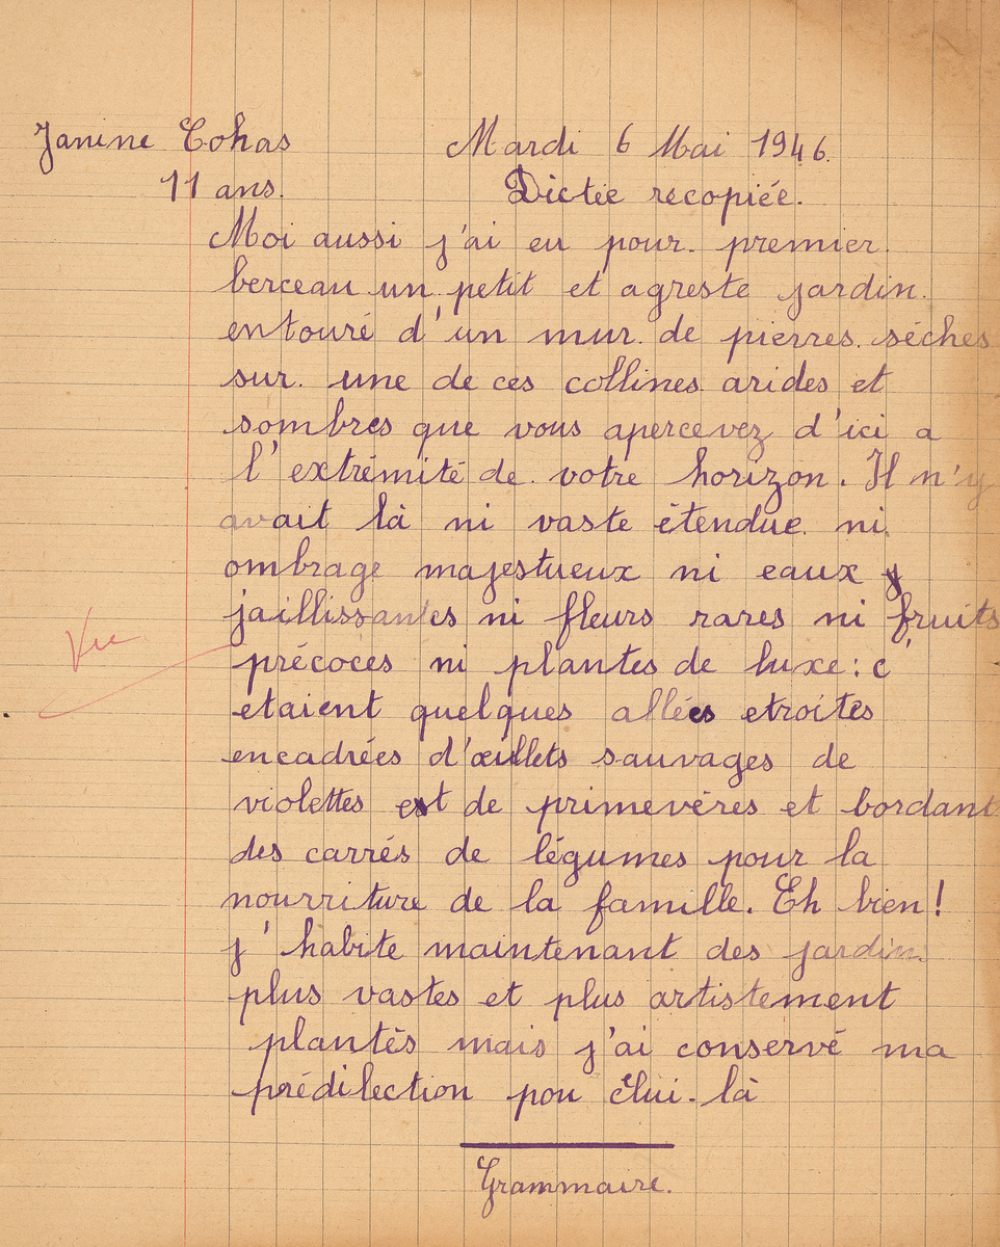 Janine Cohas Mardi 6 Mai 1946.
11 ans. Dictée recopiée.
Moi aussi j'ai eu pour premier
berceau un petit et agreste jardin.
entouré d'un mur de pierres séches
sur une de ces collines arides et
sombres que vous apercevez d'ici a
l'extrémité de votre horizon. Il n'y
avait là ni vaste étendue ni
ombrage majestueux ni eaux
jaillissantes ni fleurs rares ni fruits
précoces ni plantes de luxe : c'
etaient quelques allées etroites
encadrées d'œillets sauvages de
violettes et de primevéres et bordant
des carrés de légumes pour la
nourriture de la famille. Eh bien !
j'habite maintenant des jardins
plus vastes et plus artistement
plantés mais j'ai conservé ma
prédilection pou clui-là
Vu
Grammaire.